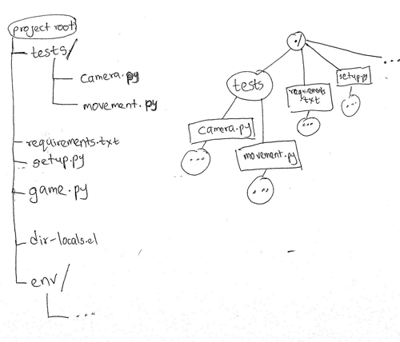 project root
tests/
camera.py
movement.py
requirements.txt
setup.py
game.py
dir-locals.el
env/
...
./
...
tests
requirements.txt
setup.py
...
...
camera.py
...
movement.py
...